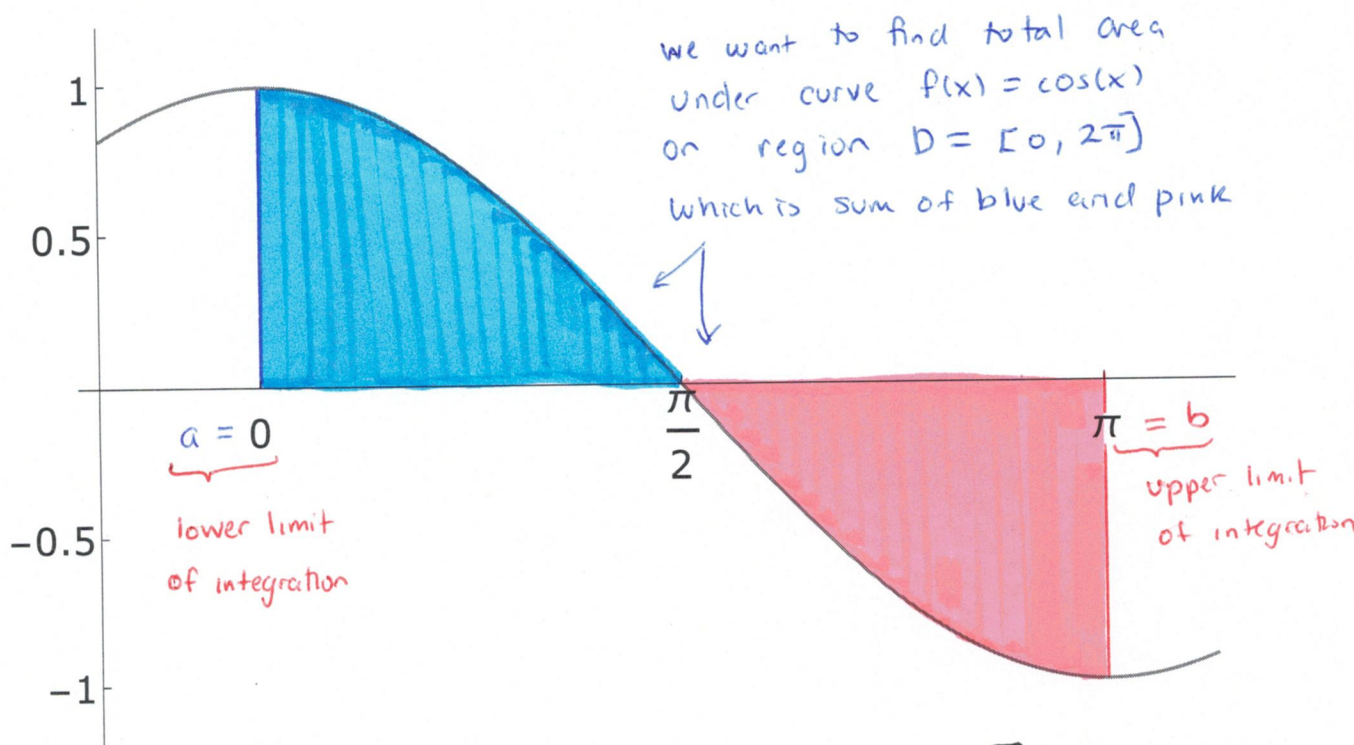 we want to find total area
under curve f(x) = cos(x)
on region D = [0, 2π]
which is sum of blue and pink
1
0.5
-0.5
-1
a = 0
π/2
π = b
lower limit
of integration
upper limit
of integration